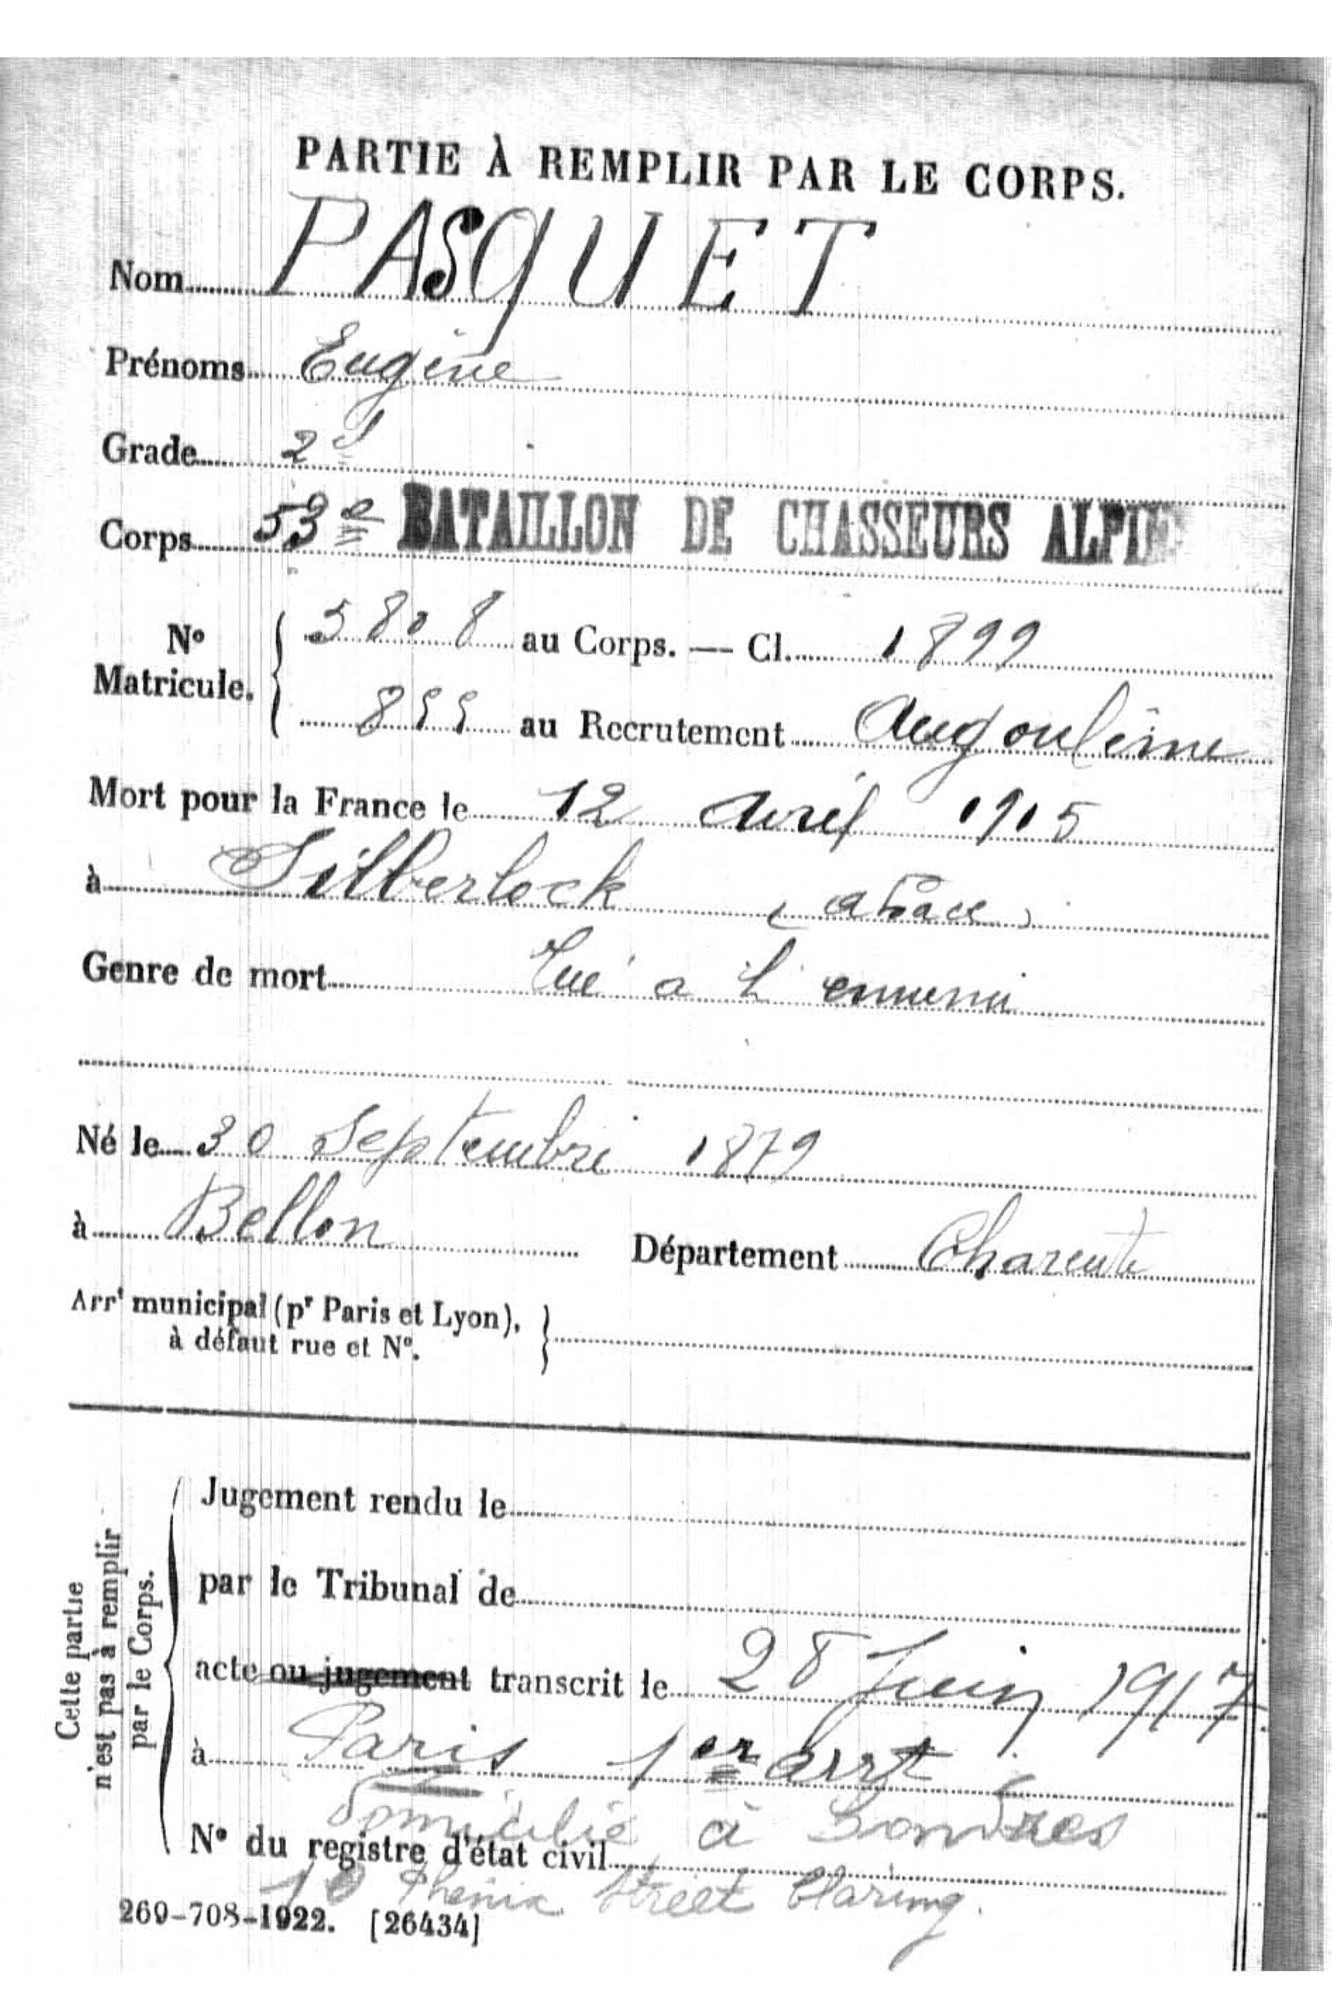 PARTIE À REMPLIR PAR LE CORPS.
Nom PASQUET
Prénoms Eugène
Grade 2e
Corps 53e BATAILLON DE CHASSEURS ALPIN
No Matricule. 5808 au Corps. — Cl. 1899
899 au Recrutement Angoulême
Mort pour la France le 12 Avril 1915
à Silberlock (Alsace)
Genre de mort Tué a l'ennemi
Né le 30 Septembre 1879
à Bellon Département Charente
Arrt municipal (pr Paris et Lyon),
à défaut rue et No.
Cette partie
n'est pas à remplir
par le Corps.
Jugement rendu le
par le Tribunal de
acte ou jugement transcrit le 28 Juin 1917
à Paris 1er arrt
domicilié à Londres
No du registre d'état civil
10 Phenix Street Charing.
269-708-1922. [26434]